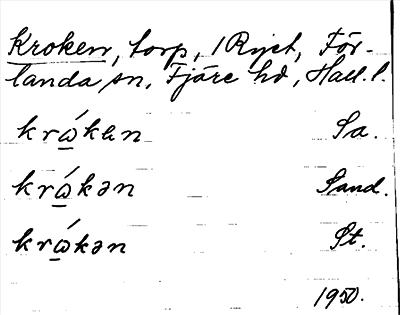 Kroken, torp, 1 Ryet, För-
landa sn, Fjäre hd, Hall. l.
krώ̲ken Sa.
krώ̲kən Sand.
krώ̲kən St.
1950.